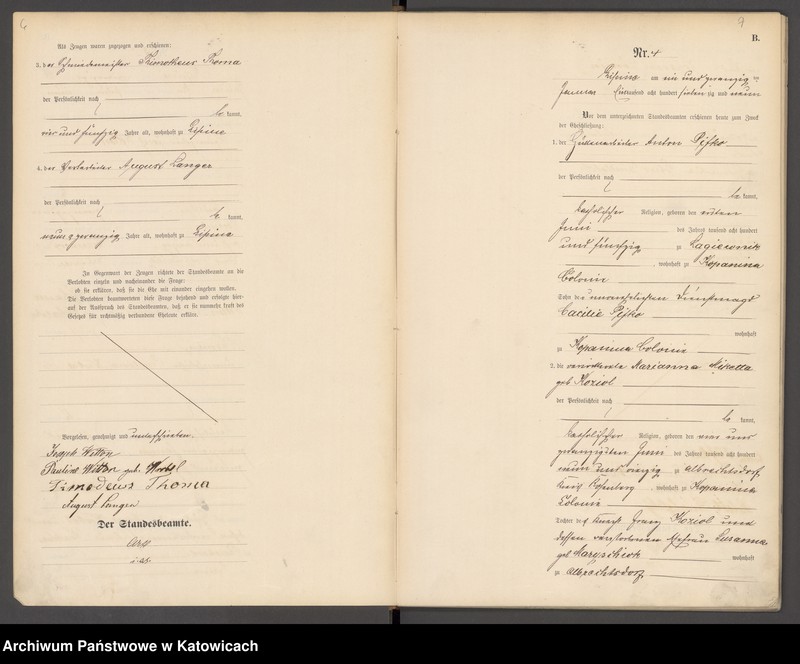 6
Als Zeugen waren zugezogen und erschienen:
3. der Schmiedemeister Timotheus Thoma
der Persönlichkeit nach
be kannt,
vier und fünfzig Jahre alt, wohnhaft zu Lipine
4. der August Langer
der Persönlichkeit nach
be kannt,
neun u zwanzig Jahre alt, wohnhaft zu Lipine
In Gegenwart der Zeugen richtete der Standesbeamte an die
Verlobten einzeln und nacheinander die Frage:
ob sie erklären, daß sie die Ehe mit einander eingehen wollen.
Die Verlobten beantworteten diese Frage bejahend und erfolgte hier-
auf der Ausspruch des Standesbeamten, daß er sie nunmehr kraft des
Gesetzes für rechtmäßig verbundene Eheleute erkläre.
Vorgelesen, genehmigt und unterschrieben.
Joseph Witton
Pauline Witton geb.
Timodeus Thoma
August Langer
Der Standesbeamte.
9
B.
Nr. 4
Lipine am ein und zwanzig ten
Januar Eintausend acht hundert sieben zig und neun
Vor dem unterzeichneten Standesbeamten erschienen heute zum Zweck
der Eheschließung:
1. der Hüttenarbeiter Anton Pifko
der Persönlichkeit nach
be kannt,
katholischer Religion, geboren den ersten
Juni des Jahres tausend acht hundert
und fünfzig zu Lagiewnik
, wohnhaft zu Kopanina
Colonie
Sohn der unverehelichten Dienstmagd
Cäcilie Pifko
wohnhaft
zu Kopanina Colonie
2. die verwittwete Marianna Miketta
geb Koziol
der Persönlichkeit nach
be kannt,
katholischer Religion, geboren den vier und
zwanzigsten Juni des Jahres tausend acht hundert
neun und vierzig zu Albrechtsdorf,
Kreis Rosenberg, wohnhaft zu Kopanina
Colonie
Tochter des Knecht Franz Koziol und
dessen verstorbenen Ehefrau Susanna
geb wohnhaft
zu Albrechtsdorf.
Archiwum Państwowe w Katowicach